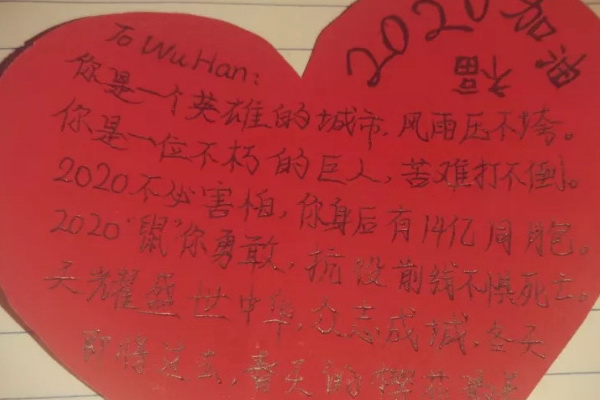 2020加油
To WuHan:
你是一个英雄的城市,风雨压不垮。
你是一位不朽的巨人,苦难打不倒。
2020不必害怕,你身后有14亿同胞。
2020“鼠”你勇敢,抗役前线不惧死亡。
天耀盛世中华,众志成城,冬天
即将过去,春天的樱花